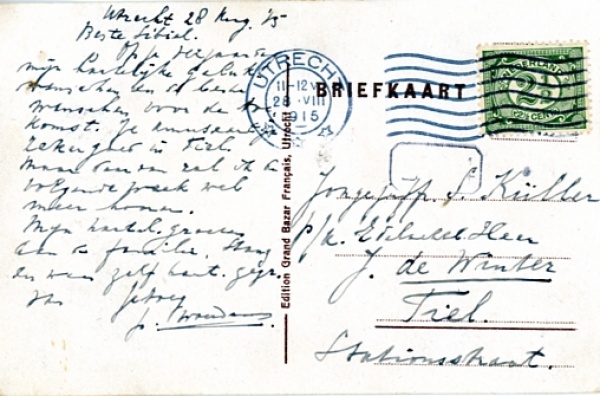 Utrecht 28 Aug. 15
Beste Sibiel.
Op je verjaardag
mijn hartelijke geluk-
wenschen en de beste
wenschen voor de toe-
komst. Je amuseert je
zeker goed in Tiel.
Maar daarvan zal ik de
volgende week wel
meer hooren.
Mijn hartel. groeten
aan de familie.
en wees zelf hart. gegr.
van
UTRECHT
11-12 V
28 VIII
1915
BRIEFKAART
NEDERLAND
2½
2½ CENT
Edition Grand Bazar Français, Utrecht
Jongejuff. S. Küller
p/a. Edelachtb. Heer
J. de Winter
Tiel.
Stationsstraat.